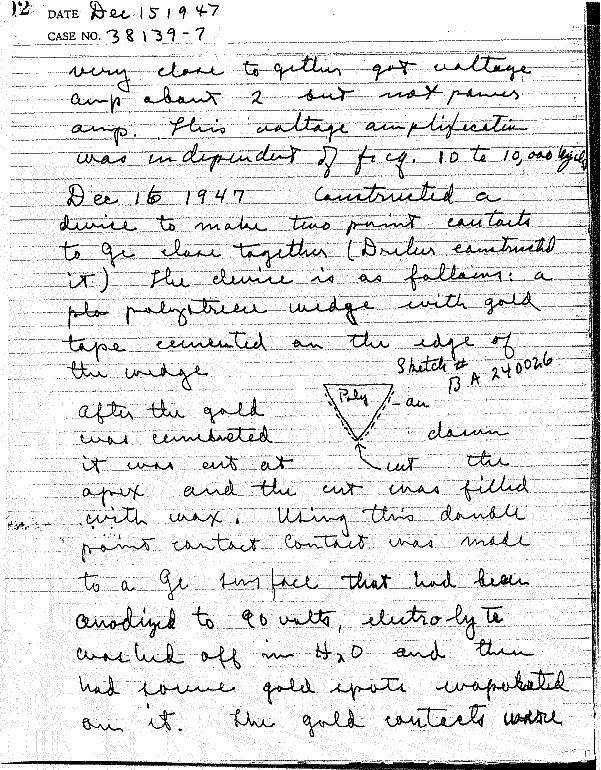 12 DATE Dec 15 1947
CASE NO. 38139-7
very close together got voltage
amp about 2 but not power
amp. This voltage amplification
was independent of freq. 10 to 10,000 cycles
Dec 16 1947 Constructed a
devise to make two point contacts
to Ge close together ( constructed
it.) The devise is as follows: a
pla polystrene wedge with gold
tape cemented on the edge of
the wedge
Sketch #
B A 240026
Poly
au
After the gold
was cemented down
it was cut at the
cut
apex and the cut was filled
with wax. Using this double
point contact contact was made
to a Ge surface that had been
anodized to 90 volts, electrolyte
washed off in H2O and then
had some gold spots evaporated
on it. The gold contacts were